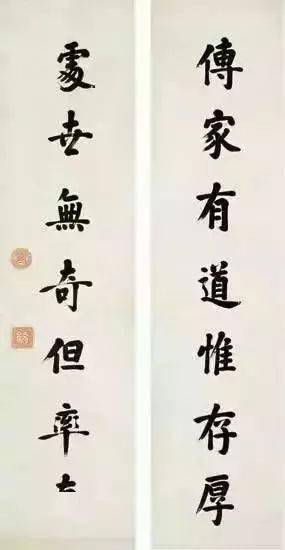 傳家有道惟存厚
處世無奇但率